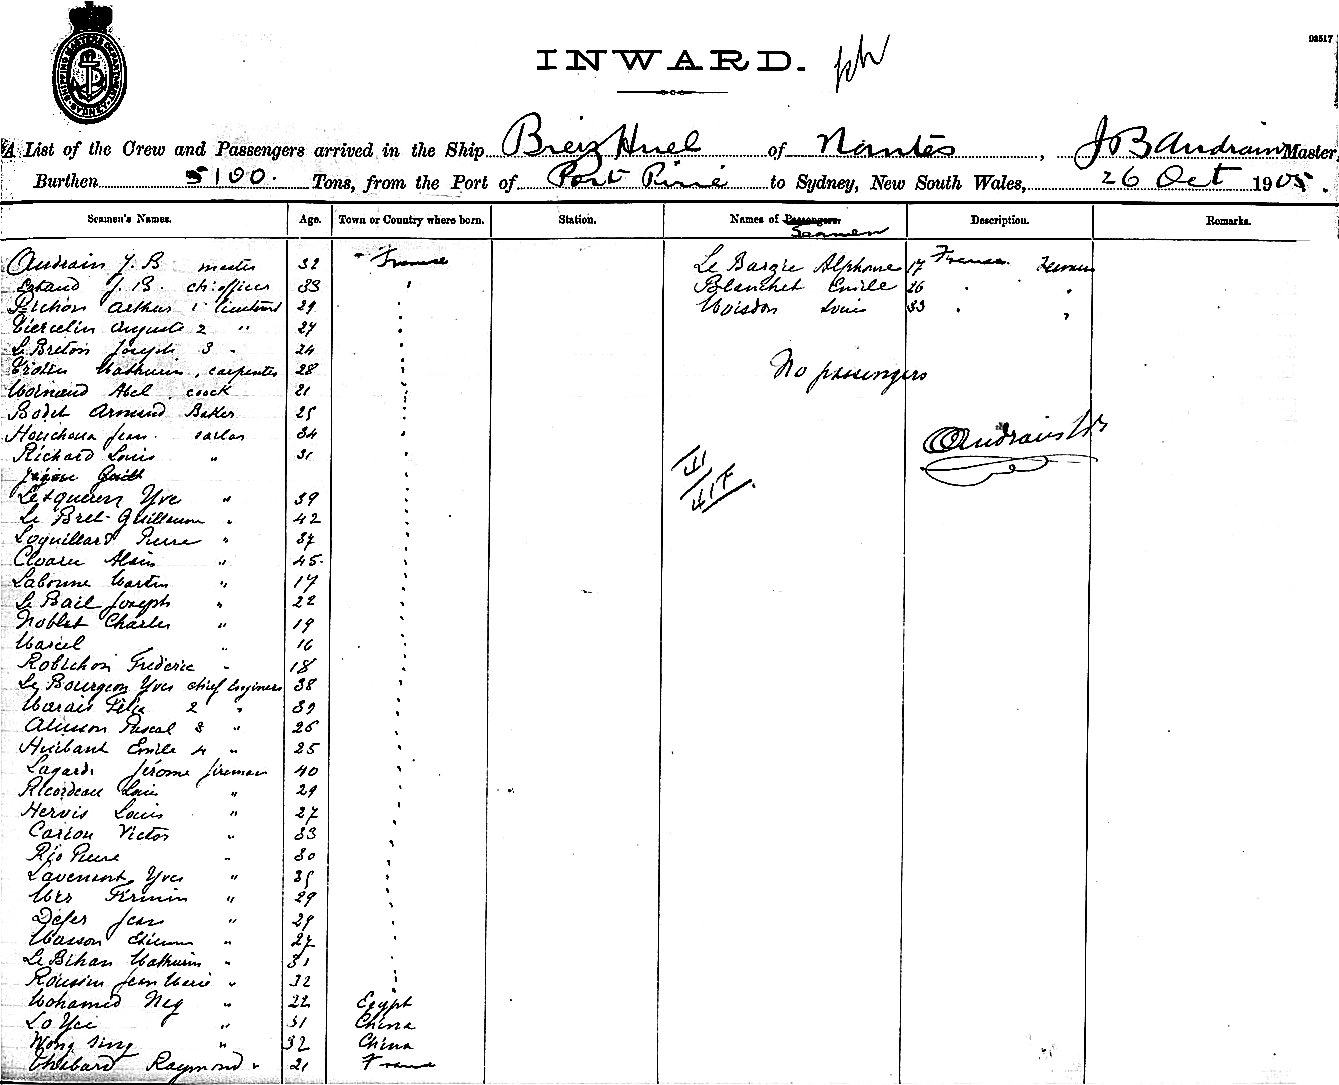 SHIPPING MASTER'S OFFICE SYDNEY
INWARD.
93517
A List of the Crew and Passengers arrived in the Ship Breiz Huel of Nantes, J B Audrain Master
Burthen 5100. Tons, from the Port of Port Pirie to Sydney, New South Wales, 26 Oct 1905.
Seamen's Names. Age. Town or Country where born. Station. Names of Passengers. Description. Remarks.
Seamen
Audrain J. B master 32 France Le Bargie Alphonse 17 France
J. B. ch: officer 33 " Blanchet Emile 26 " "
Pichon Arthur 1 lieutenant 29 " Moisdon Louis 33 " "
Tiercelin Auguste 2 " 27 "
Le Breton Joseph 3 " 24 "
Mathurin, carpenter 28 " No passengers
Abel, coock 21 "
Bodet Armand Baker 25 "
Jean. sailor 34 " Audrain
Richard Louis " 31 "
Yve " 39 "
Le Bret Guillaume " 42 "
Loquillard Pierre " 37 "
Cloarec Alain " 45 "
Labonne Martin " 17 "
Le Bail Joseph " 22 "
Noblet Charles " 19 "
Marcel " 16 "
Robichon Frederic " 18 "
Le Bourgeon Yves chief Engineer 38 "
Marais Felix 2 " 39 "
Pascal 3 " 26 "
Emile 4 " 25 "
Lagarde Jérome fireman 40 "
Ricordeau Louis " 29 "
Hervis Louis " 27 "
Cariou Victor " 33 "
Rio Pierre " 30 "
Lavenant Yves " 35 "
Firmin " 29 "
Defer Jean " 29 "
Masson Etienne " 27 "
Le Bihan Mathurin " 31 "
Roussin Jean Marie " 32 "
Mohamed Neg " 22 Egypt
Lo Yee " 31 China
Wong Sing " 32 China
Thebard Raymond " 21 France